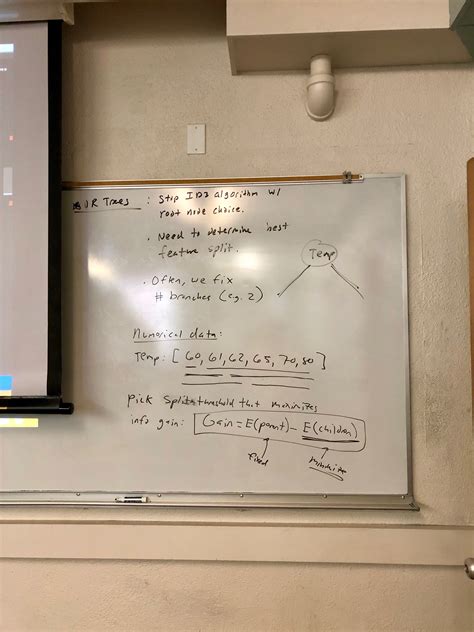 1R Trees : Stop ID3 algorithm w/
root node choice.
. Need to determine best
feature split.
Temp
. Often, we fix
# branches (e.g. 2)
Numerical data:
Temp: [60, 61, 62, 65, 70, 80]
Pick split threshold that maximizes
info gain: Gain = E(parent) - E(children)
fixed
minimize